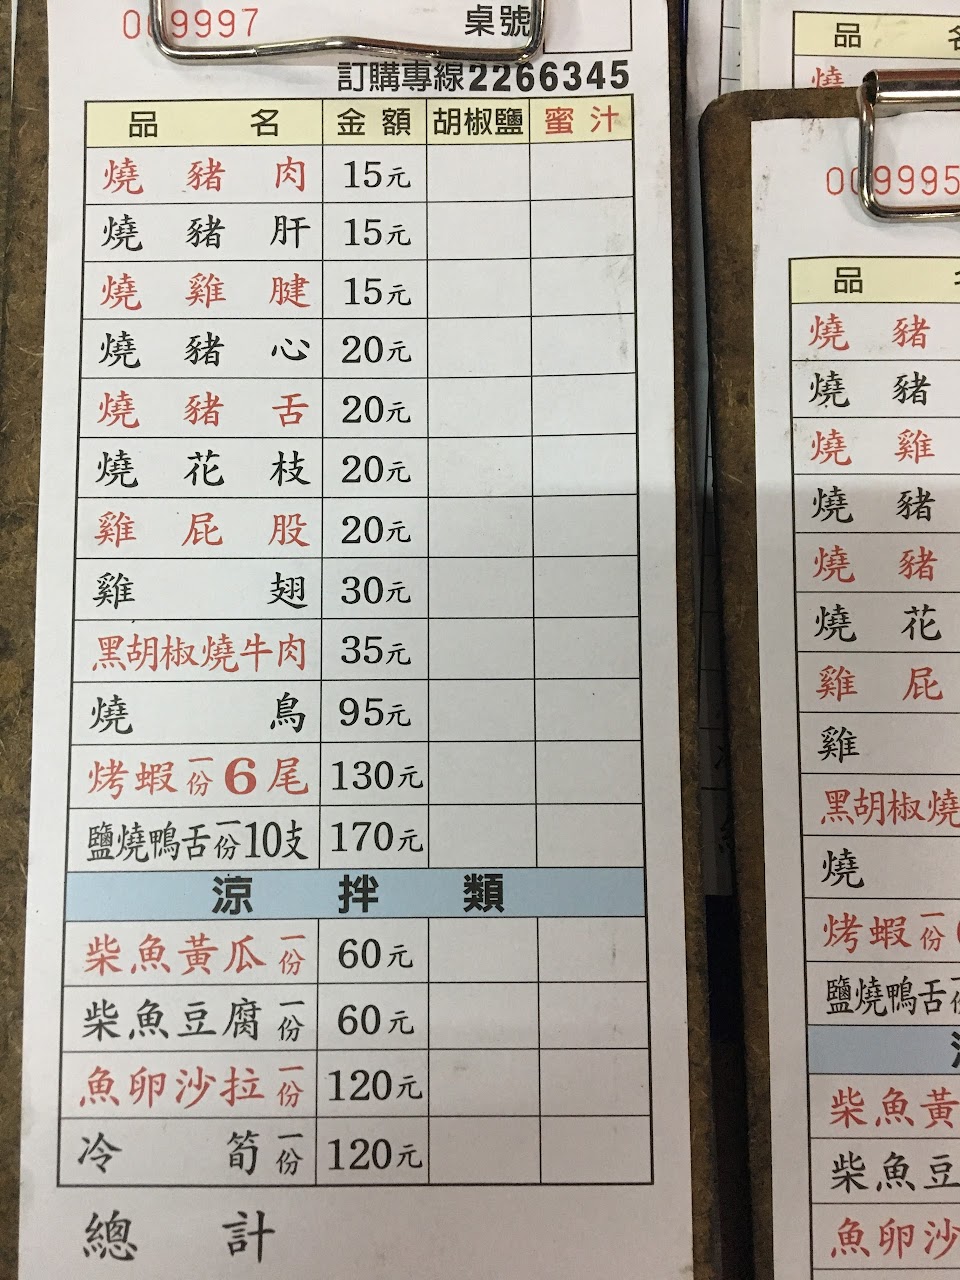 009997 桌號
訂購專線2266345
品名 金額 胡椒鹽 蜜汁
燒豬肉 15元
燒豬肝 15元
燒雞腱 15元
燒豬心 20元
燒豬舌 20元
燒花枝 20元
雞屁股 20元
雞翅 30元
黑胡椒燒牛肉 35元
燒鳥 95元
烤蝦一份6尾 130元
鹽燒鴨舌一份10支 170元
涼拌類
柴魚黃瓜一份 60元
柴魚豆腐一份 60元
魚卵沙拉一份 120元
冷筍一份 120元
總計
品名
燒
009995
品
燒豬
燒豬
燒雞
燒豬
燒豬
燒花
雞屁
雞
黑胡椒燒
燒
烤蝦一份
鹽燒鴨舌一份
柴魚黃
柴魚豆
魚卵沙